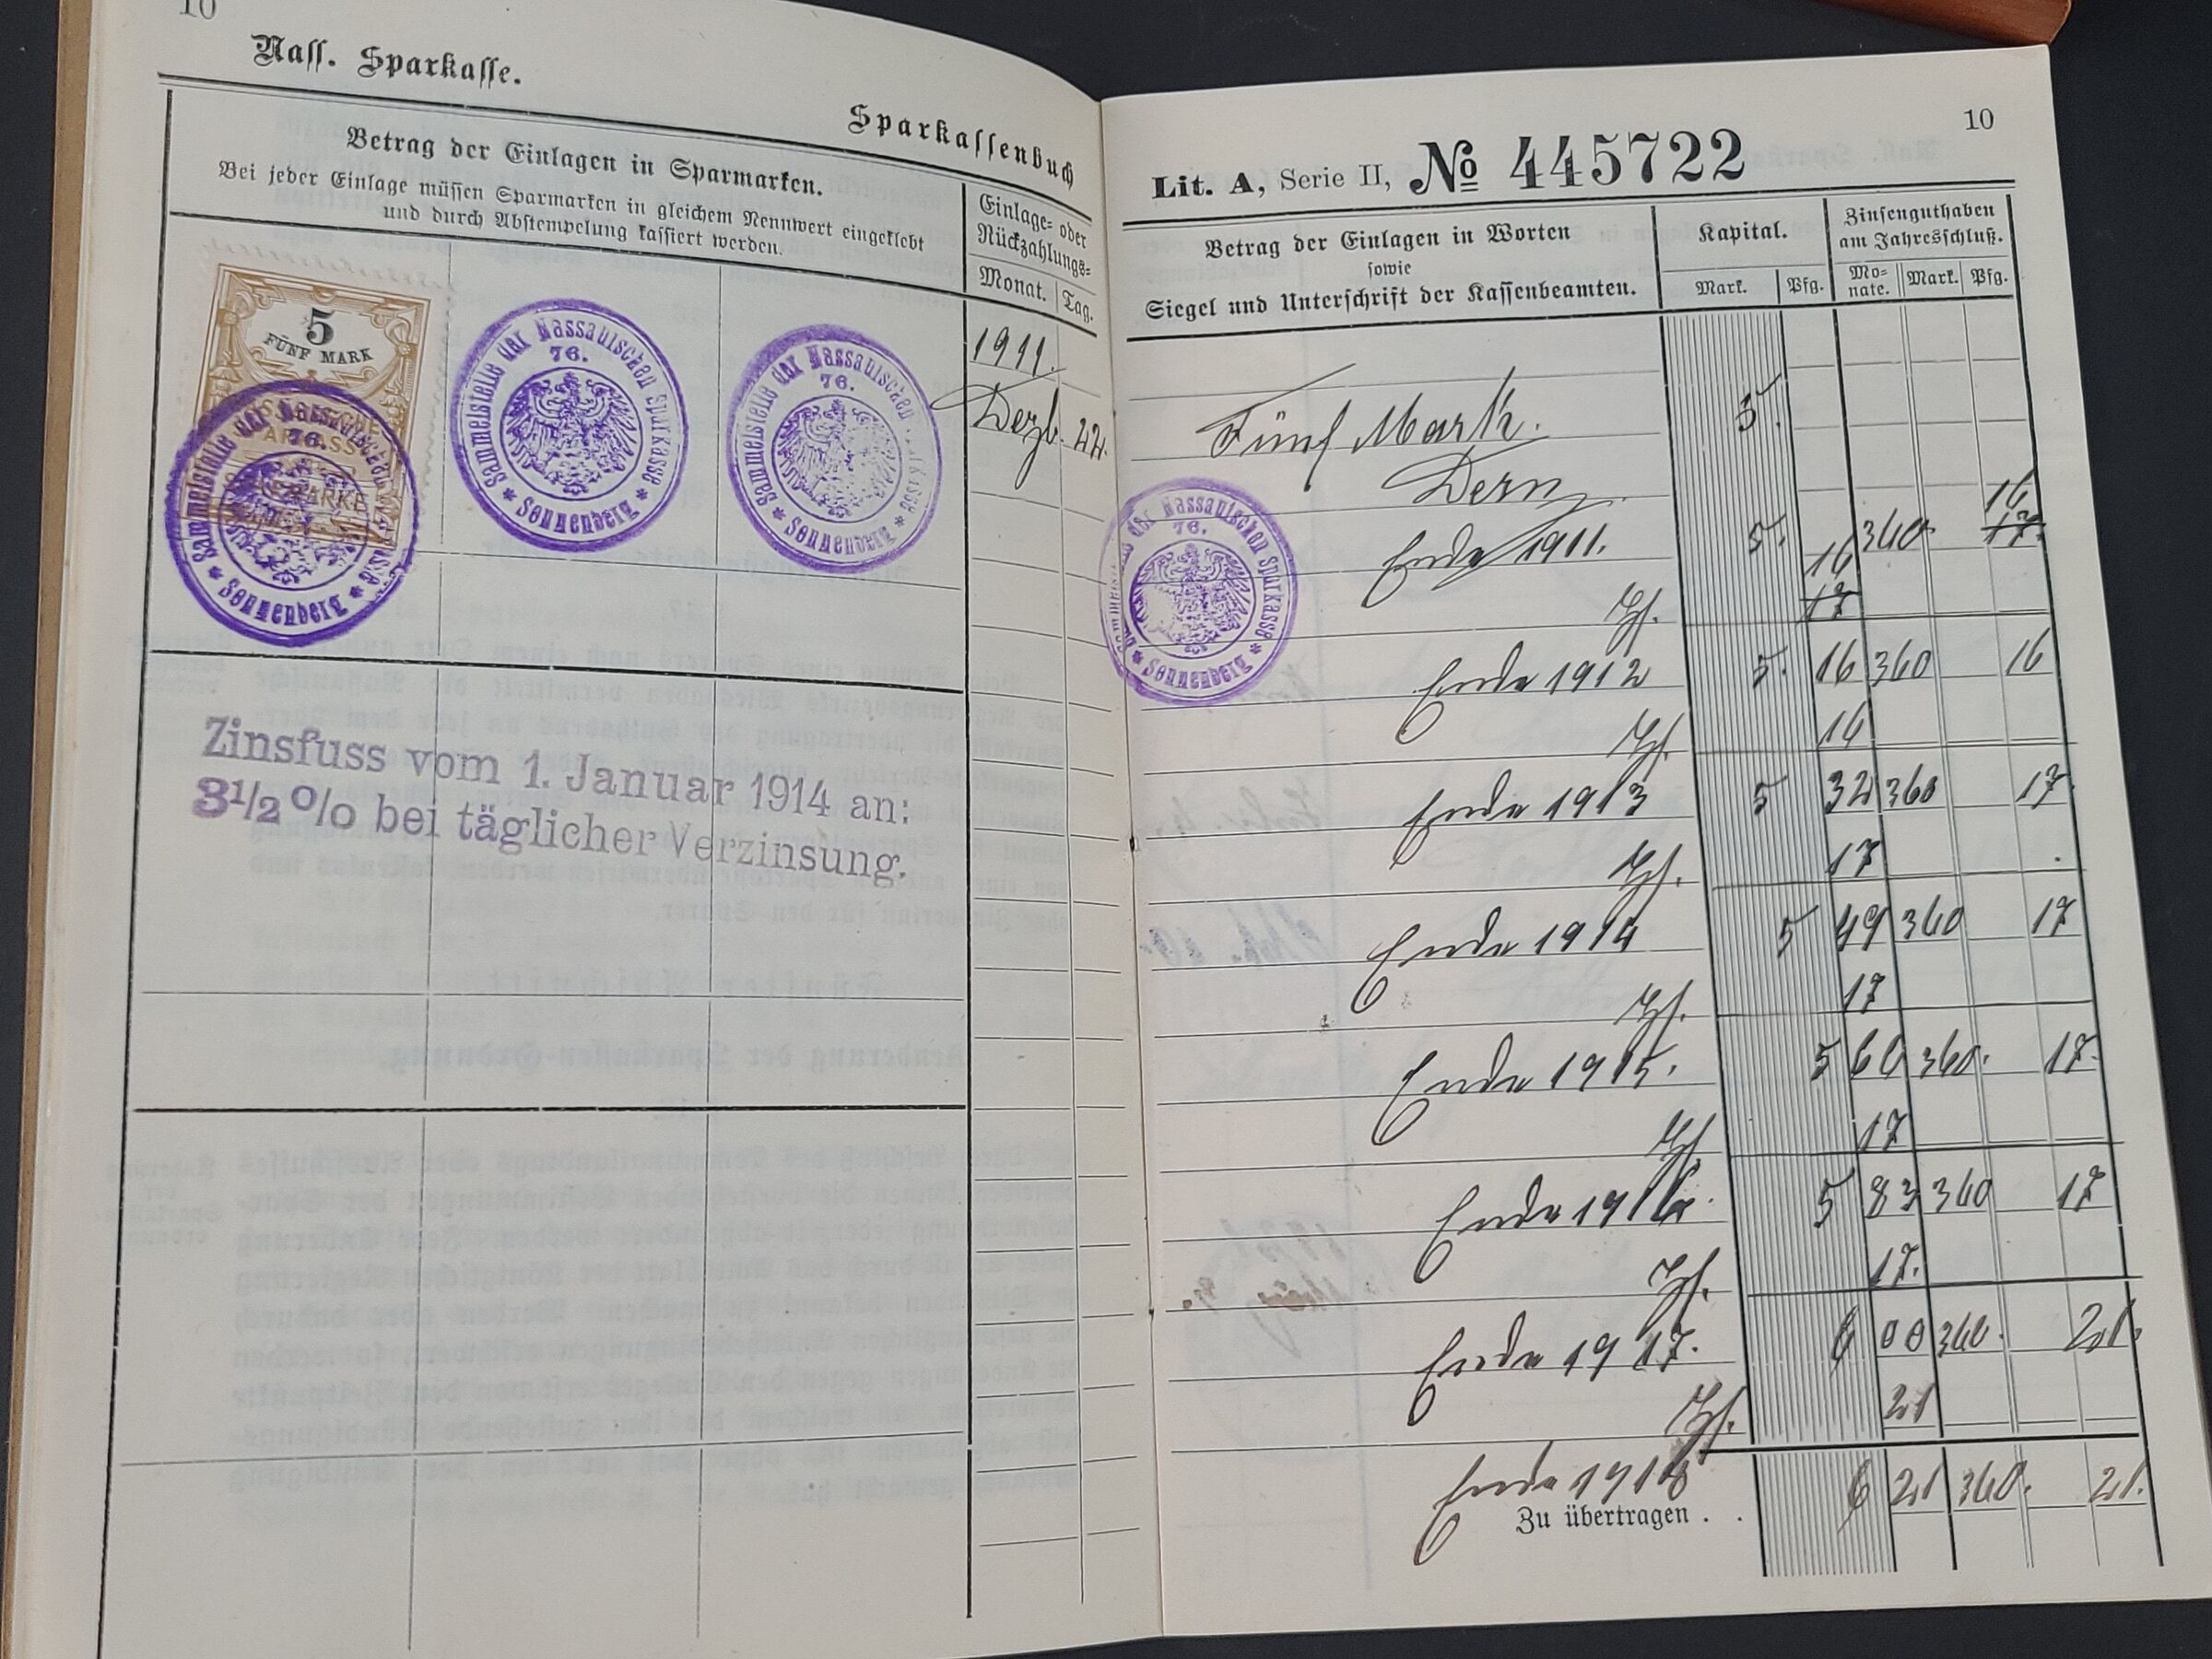 10
Nass. Sparkasse.
Sparkassenbuch
Betrag der Einlagen in Sparmarken.
Bei jeder Einlage müssen Sparmarken in gleichem Nennwert eingeklebt
und durch Abstempelung kassiert werden.
Einlage- oder
Rückzahlungs-
Monat. Tag.
5
FÜNF MARK
SPARMARKE
Sammelstelle der Nassauischen Sparkasse
76.
* Sonnenberg *
Sammelstelle der Nassauischen Sparkasse
76.
* Sonnenberg *
Sammelstelle der Nassauischen Sparkasse
76.
* Sonnenberg *
1911.
Dezb. 22.
Zinsfuss vom 1. Januar 1914 an:
3½ % bei täglicher Verzinsung.
10
Lit. A, Serie II, № 445722
Betrag der Einlagen in Worten
sowie
Siegel und Unterschrift der Kassenbeamten.
Kapital.
Mark. Pfg.
Zinsenguthaben
am Jahresschluß.
Mo-
nate. Mark. Pfg.
Fünf Mark. 5.
Sammelstelle der Nassauischen Sparkasse
76.
* Sonnenberg *
16
Ende 1911. 5. 360 17.
16
Zs. 17
Ende 1912 5. 16 360 16
Zs. 16
Ende 1913 5 32 360 17
Zs. 17
Ende 1914 5 49 360 17
Zs. 17
Ende 1915. 5 66 360. 17.
Zs. 17
Ende 1916. 5 83 360 17
Zs. 17.
Ende 1917. 6 00 360. 21.
Zs. 21
Ende 1918 6 21 360. 21.
Zu übertragen . .